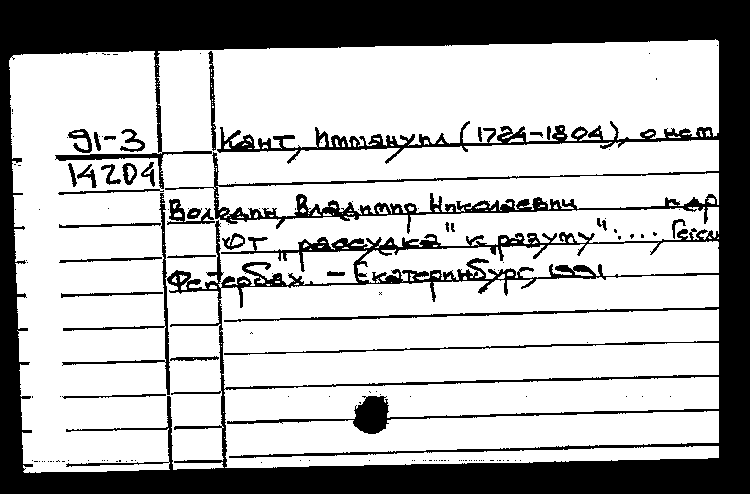 91-3
14204
Кант, Иммануил (1724-1804), о нем
Володин, Владимир Николаевич и др
От "рассудка" к "разуму": ..., Гегель
Фейербах. - Екатеринбург, 1991.